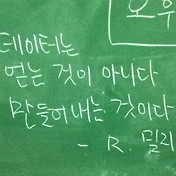 오후
데이터는
얻는 것이 아니다
만들어내는 것이다
- R. 밀리